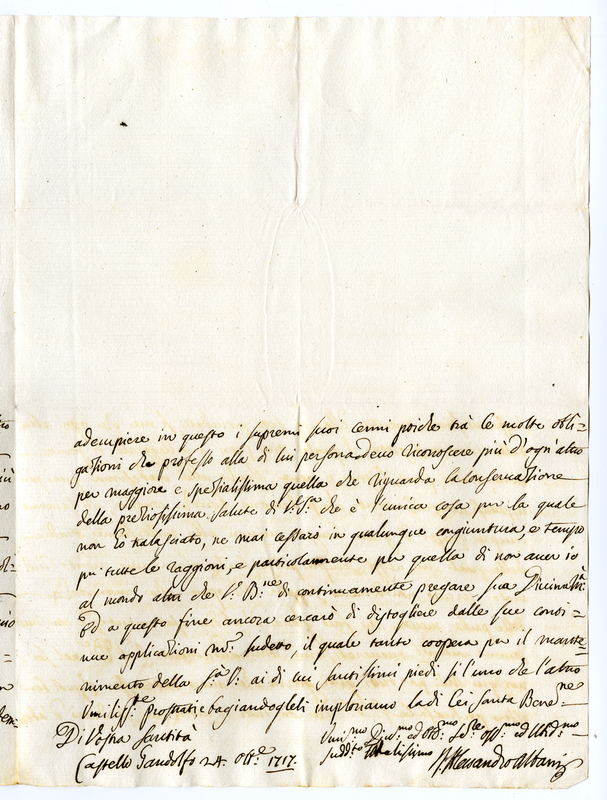 adempiere in questo i supremi suoi cenni poiche trà le molte obli=
gationi che professo alla di lui persona devo riconoscere più d'ogn'altro
per maggiore e spetialissima quella che riguarda la conservatione
della pretiosissima salute di V.ra S.tà che è l'unica cosa per la quale
non hò tralasciato, ne mai cessarò in qualunque congiuntura, e tempo
per tutte le raggioni, e particolarmente per quella di non aver io
al mondo altri che V. B.ne di continuamente pregare sua Divina M.tà
Ed a questo fine ancora cercarò di distogliere dalle sue conti=
nue applicationi sudetto, il quale tanto coopera per il mante=
nimento della S.tà V. ai di cui santissimi piedi si l'uno che l'altro
Umiliss.te prostrati e bagiandogleli imploriamo la di Lei Santa Bened.ne
Di Vostra Santità
Castello Gandolfo 24. Ott.e 1717.
Umi.mo Div.mo ed Obb.mo ed Ubid.mo
Sudd.to
Alessandro Albani